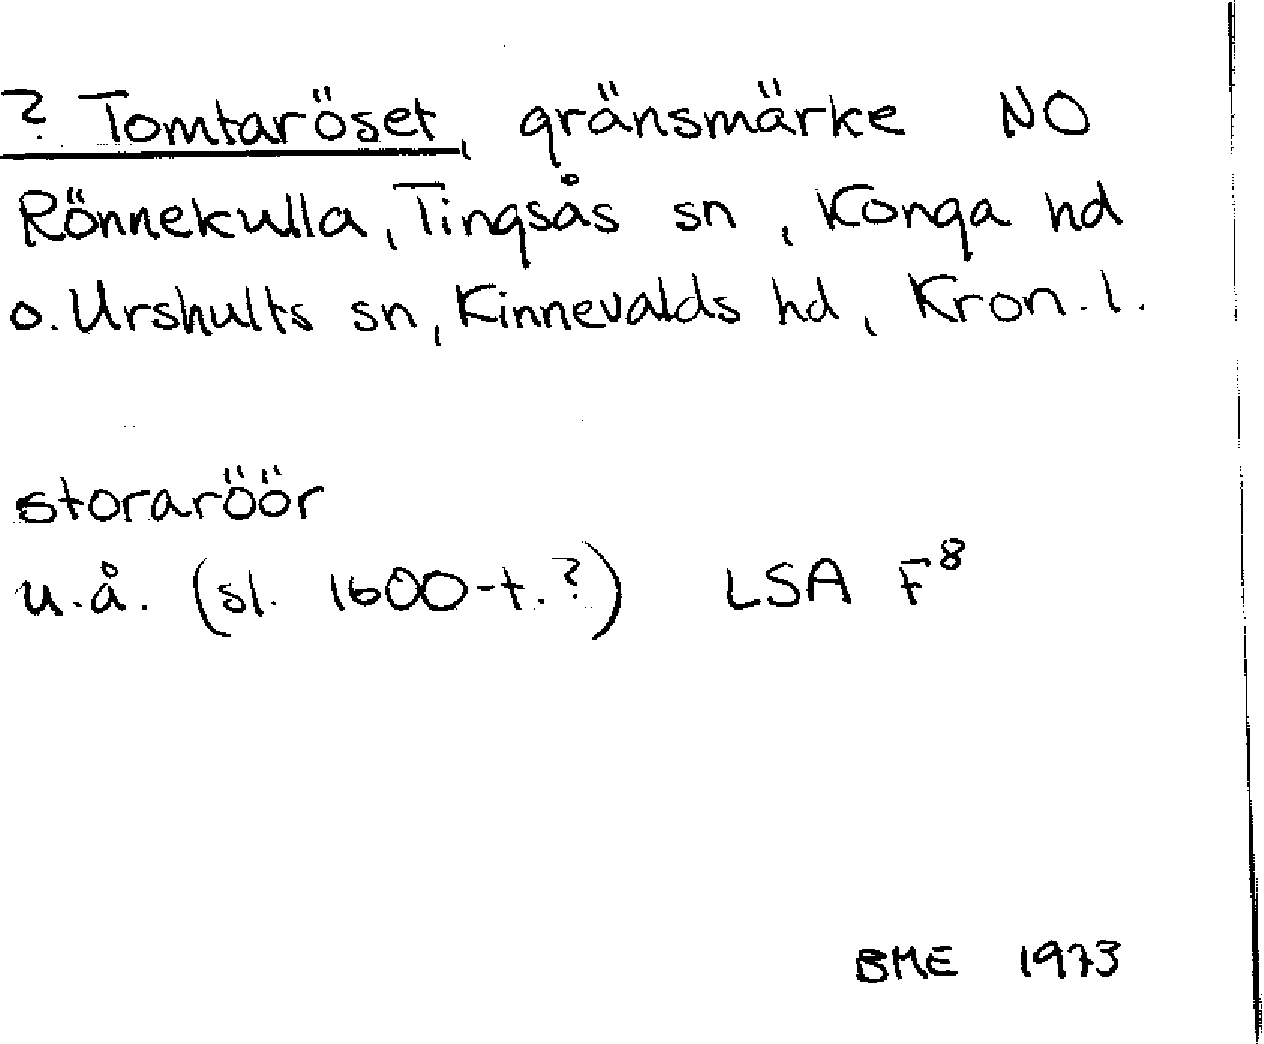 ? Tomtaröset, gränsmärke NO
Rönnekulla, Tingsås sn, Konga hd
o. Urshults sn, Kinnevalds hd, Kron. l.
storaröör
u.å. (sl. 1600-t.?) LSA F⁸
BME 1973